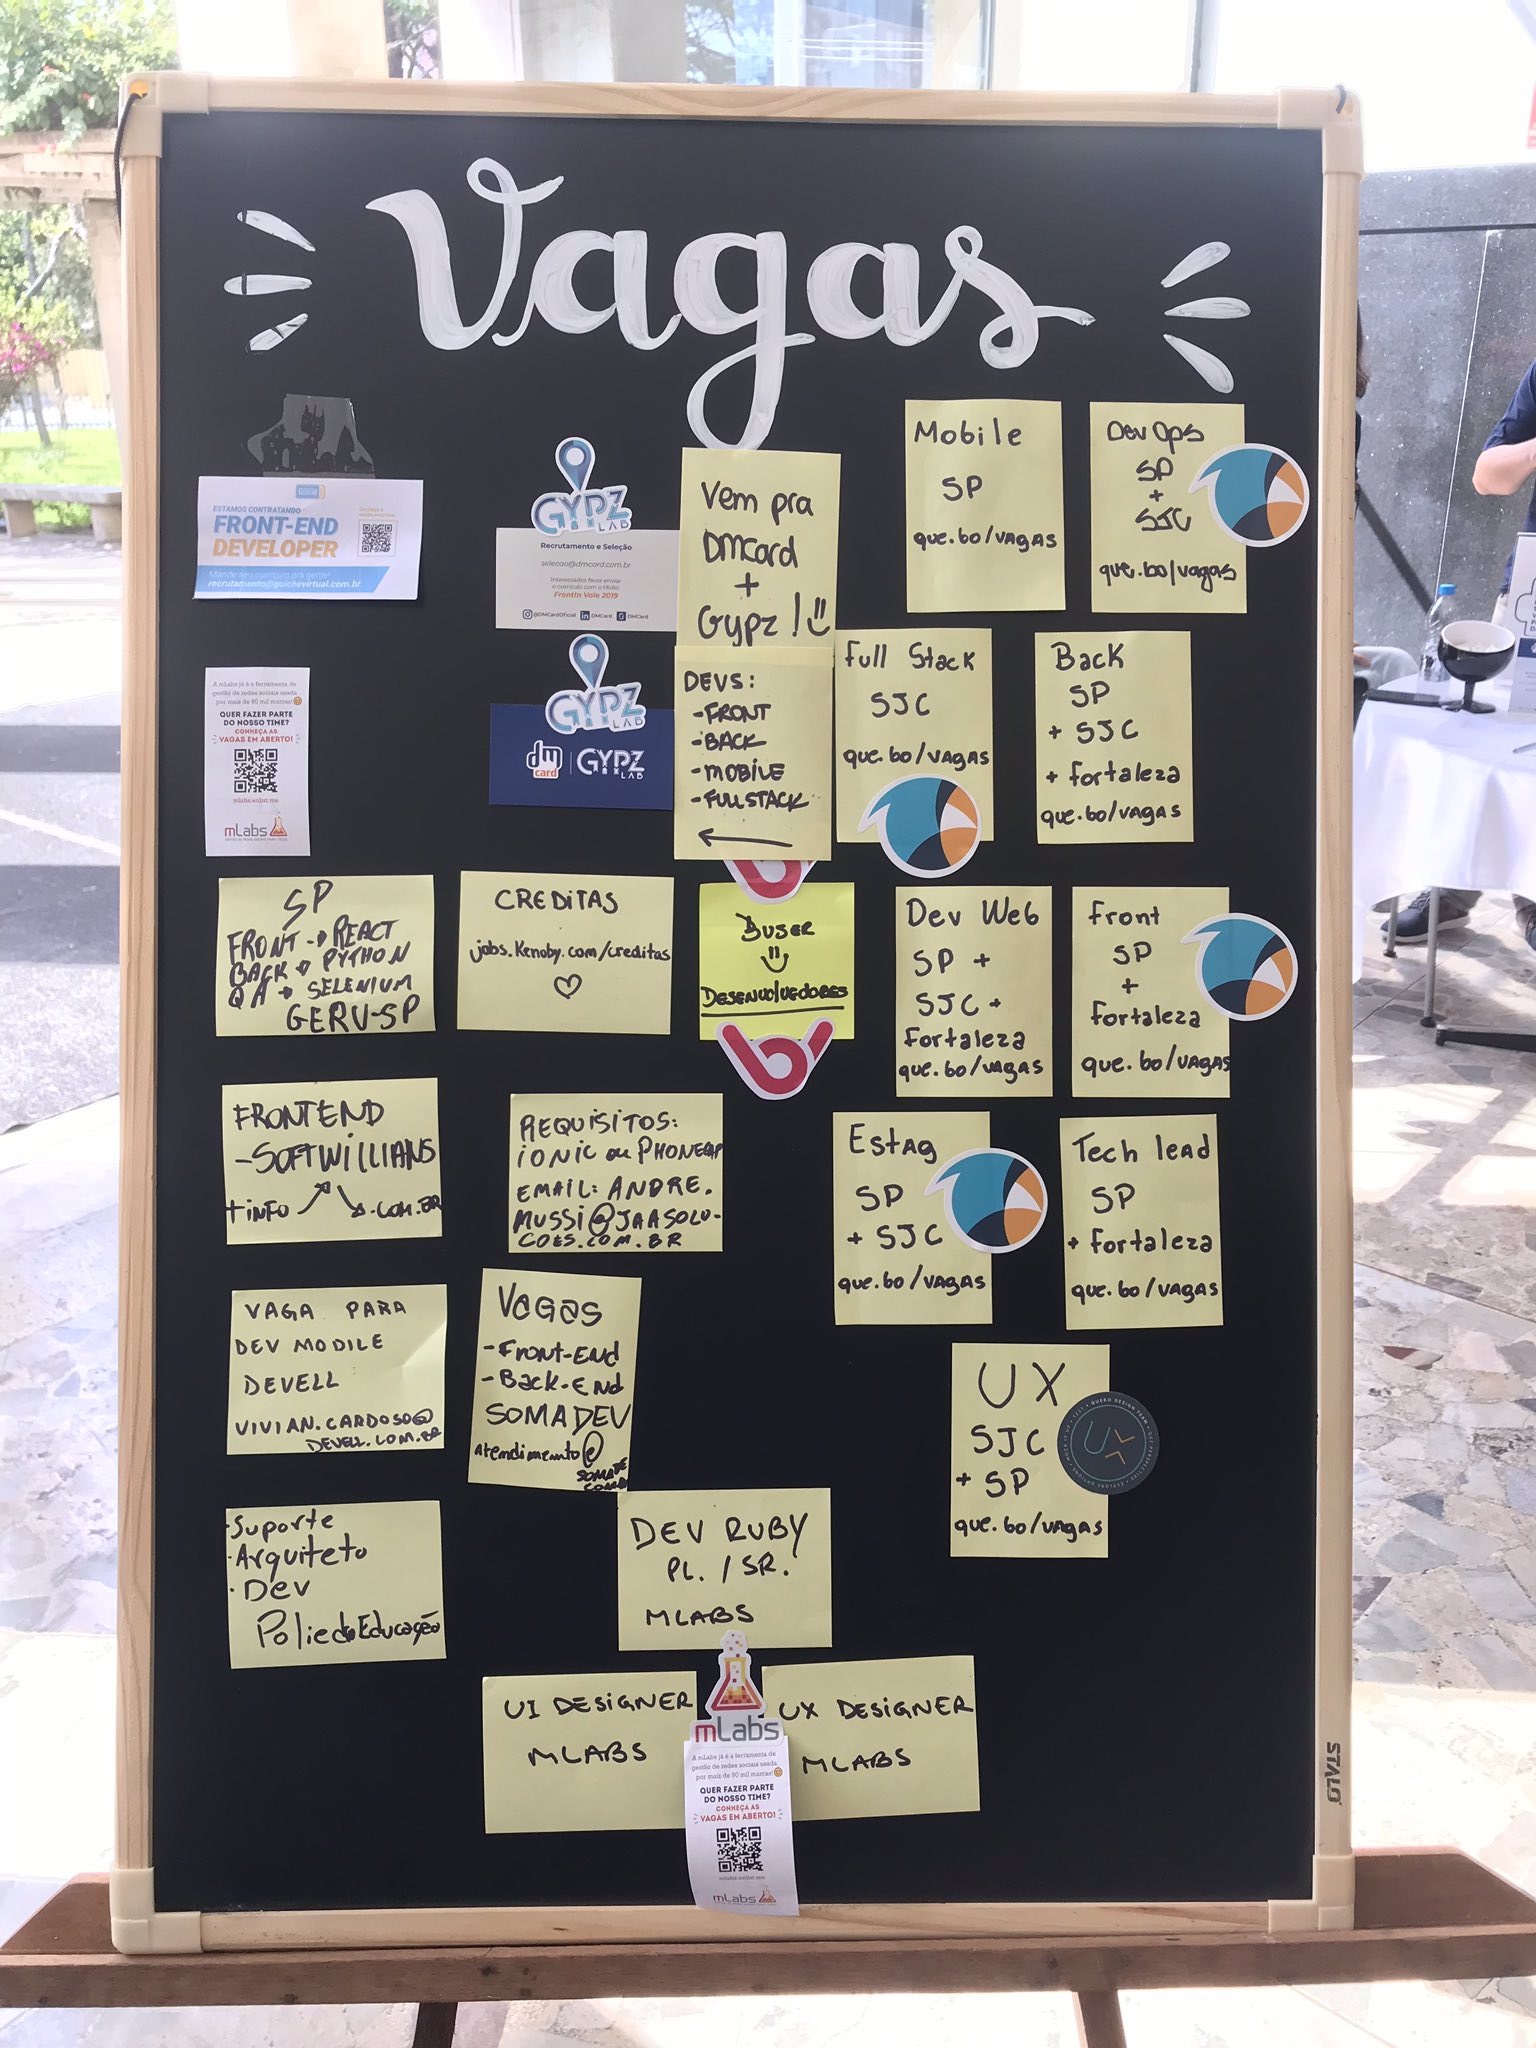 Vagas
ESTAMOS CONTRATANDO
FRONT-END
DEVELOPER
Mande seu currículo pra gente!
recrutamento@guichevirtual.com.br
GYPZ
LAB
Recrutamento e Seleção
selecao@dmcard.com.br
Interessados favor enviar
o currículo com o título
FrontIn Vale 2019
@DMCardOficial DMCard DMCard
Vem pra
DMCard
+
Gypz!
Mobile
SP
que.bo/vagas
DevOps
SP
+
SJC
que.bo/vagas
A mLabs já é a ferramenta de
gestão de redes sociais usada
por mais de 90 mil marcas!
QUER FAZER PARTE
DO NOSSO TIME?
CONHEÇA AS
VAGAS EM ABERTO!
mlabs.enlist.me
mLabs
GYPZ
LAB
dm
card
GYPZ
LAB
DEVS:
-FRONT
-BACK
-MOBILE
-FULLSTACK
Full Stack
SJC
que.bo/vagas
Back
SP
+ SJC
+ fortaleza
que.bo/vagas
SP
FRONT → REACT
BACK → PYTHON
QA → SELENIUM
GERU-SP
CREDITAS
jobs.kenoby.com/creditas
BUSER
DESENVOLVEDORES
Dev Web
SP +
SJC +
Fortaleza
que.bo/vagas
Front
SP
+
fortaleza
que.bo/vagas
FRONTEND
-SOFTWILLIANS
+INFO
.COM.BR
REQUISITOS:
IONIC ou PHONEGAP
EMAIL: ANDRE.
MUSSI@JAASOLU-
COES.COM.BR
Estag
SP
+ SJC
que.bo/vagas
Tech lead
SP
+ fortaleza
que.bo/vagas
VAGA PARA
DEV MODILE
DEVELL
VIVIAN.CARDOSO@
DEVELL.COM.BR
Vagas
-Front-End
-Back-End
SOMADEV
atendimento@
UX
SJC
+ SP
que.bo/vagas
·Suporte
·Arquiteto
·Dev
Poliedo Educação
DEV RUBY
PL. / SR.
MLABS
UI DESIGNER
MLABS
UX DESIGNER
MLABS
mLabs
A mLabs já é a ferramenta de
gestão de redes sociais usada
por mais de 90 mil marcas!
QUER FAZER PARTE
DO NOSSO TIME?
CONHEÇA AS
VAGAS EM ABERTO!
mlabs.enlist.me
mLabs
STALO